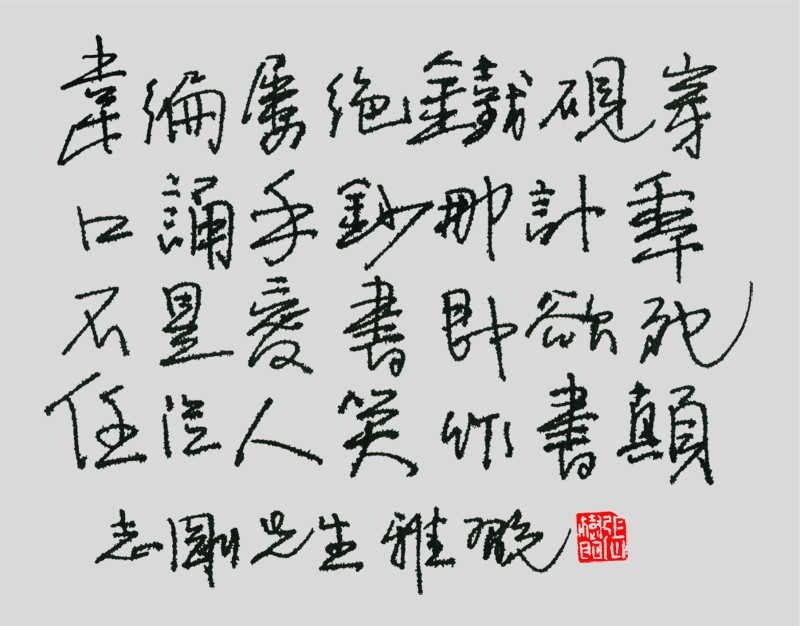 韋編屢絕鐵硯穿
口誦手鈔那計年
不是愛書即欲死
任從人笑作書顛
志剛先生雅翫